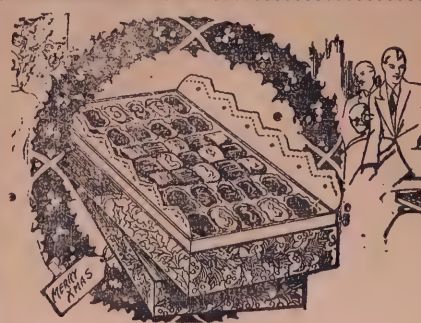 MERRY
XMAS